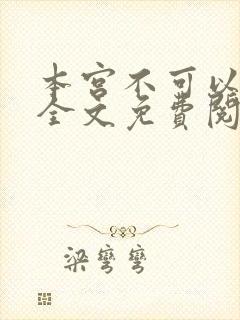 本宫不可以
全文免费阅
梁弯弯